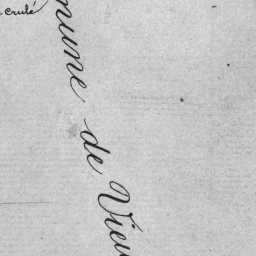 crulé
mune de Vieu